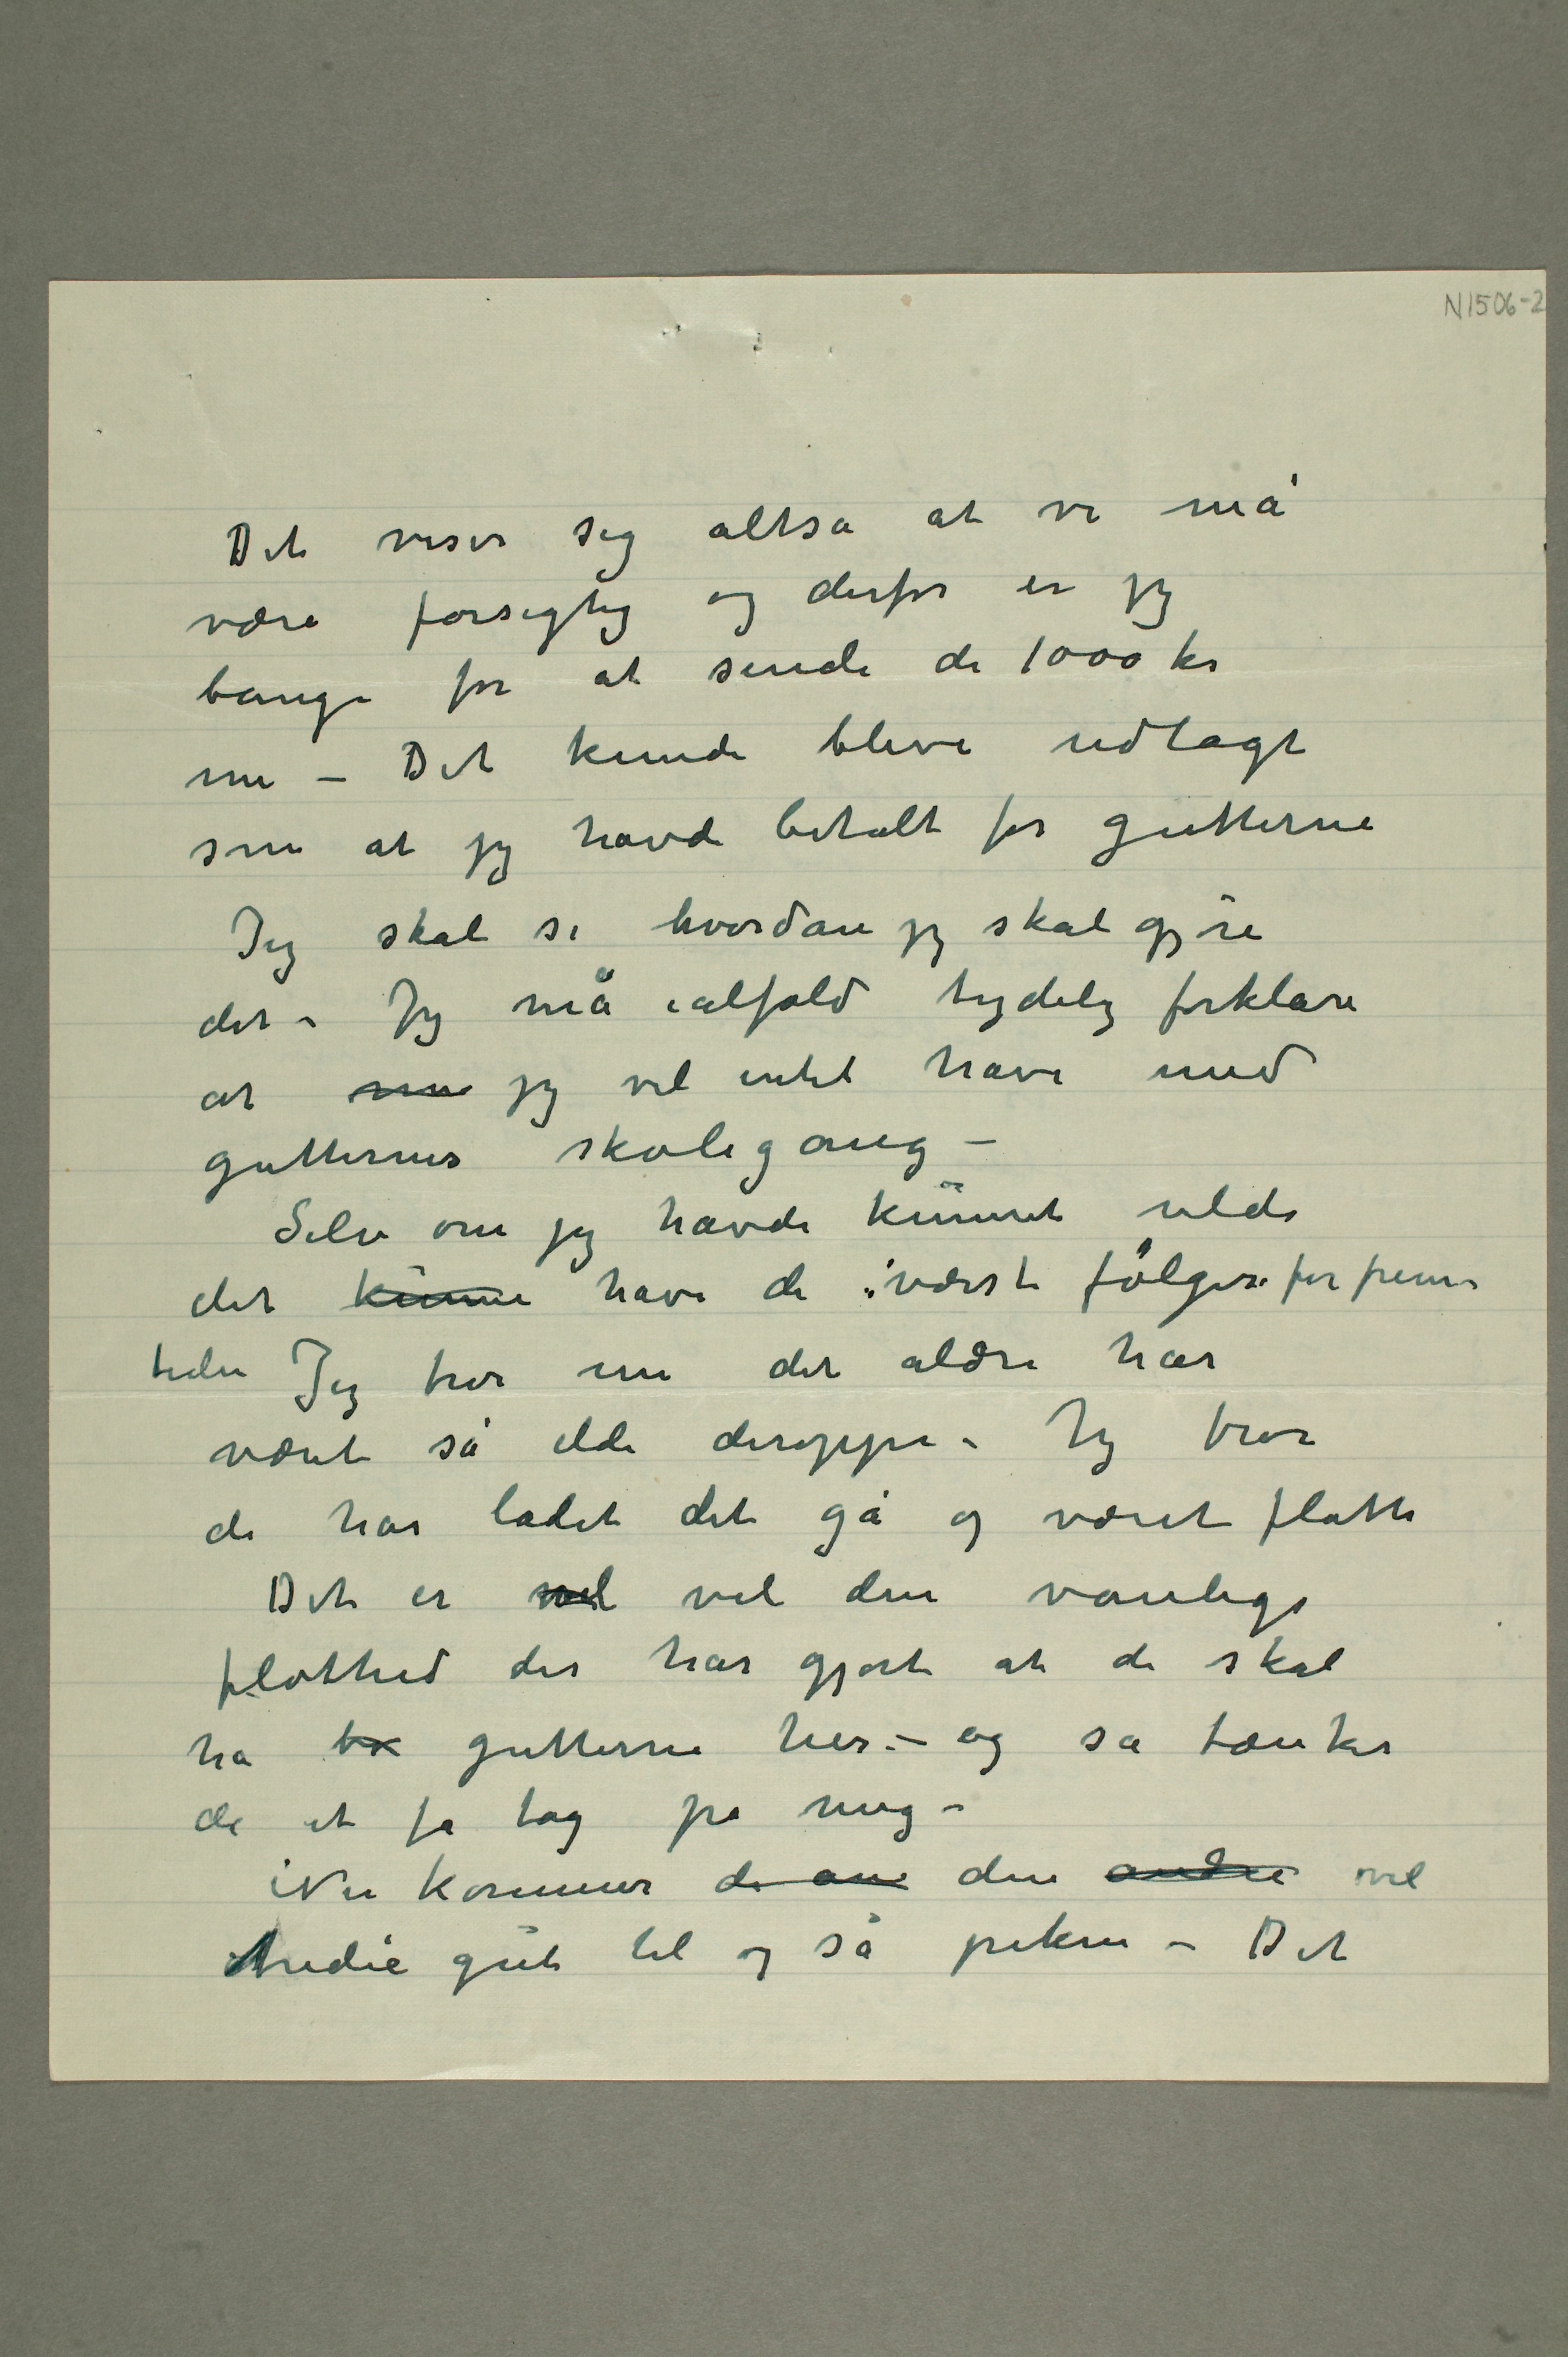 N1506-2
Det viser sig altså at vi må
være forsigtig og derfor er jeg
bange for at sende de 1000 kr
nu – Det kunde blive udlagt
som at jeg havde betalt for gutterne
Jeg skal se hvordan jeg skal gjøre
det – Jeg må ialfald tydelig forklare
at nu jeg vil intet have med
gutternes skolegang –
Selv om jeg havde kunnet vilde
det kunne have de værste følger for frem
tiden Jeg tror nu det aldri har
været så ilde deroppe – Jeg tror
de har ladet det gå og været flotte
Det er vel vel den vanlige
flothed der har gjort at de skal
ha gutterne her – og så tænker
de at få tag på mig –
Nu kommer de an den andre vel
tredie gut til og så piken – Det